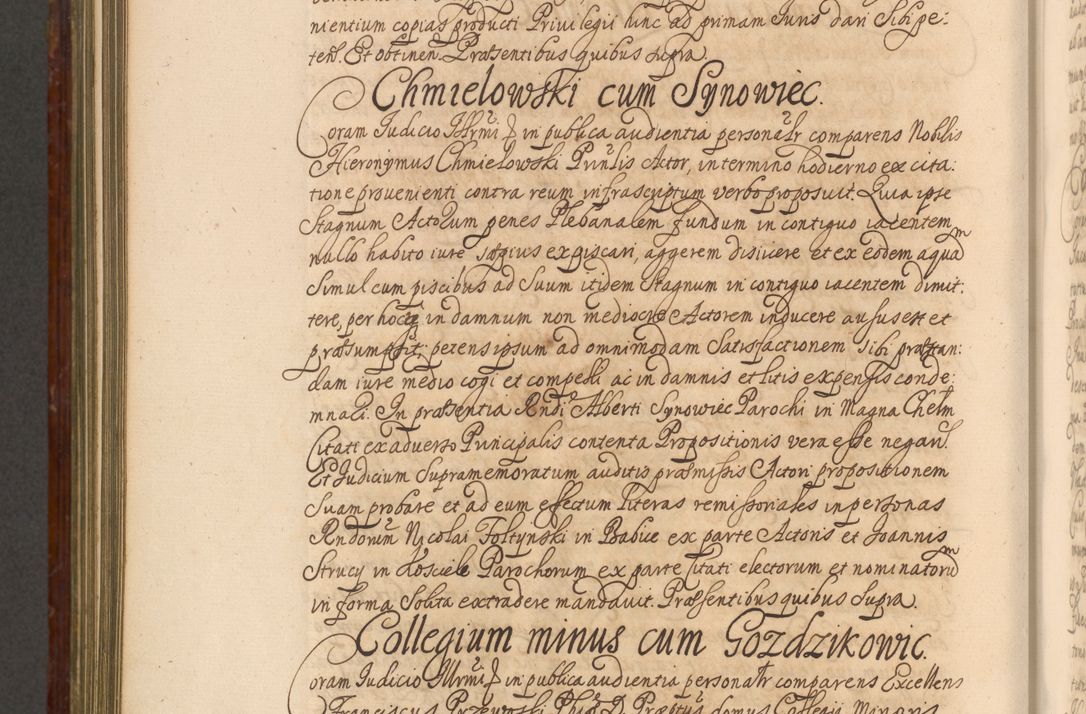 nientium copias producti Privilegii hinc ad primam Iuris dari Sibi pe:
ten. Et obtinen. Præsentibus quibus supra.
Chmielowski cum Synowiec.
Coram Iudicio Illrmi D in publica audientia personalr comparens Nobilis
Hieronymus Chmielowski Prinlis Actor, in termino hodierno ex cita:
tione provenienti contra reum infrascriptum verbo proposuit. Quia ipse
Stagnum Actorum penes Plebanalem fundum in contiguo iacentem
nullo habito iure sæpius expiscari, aggerem disiicere et ex eodem aquam
Simul cum piscibus ad Suum itidem Stagnum in contiguo iacentem dimit:
tere, per hocq in damnum non mediocre Actorem inducere ausus est et
præsumpsit; petens ipsum ad omnimodam Satisfactionem Sibi præstan:
dam iure medio cogi et compelli ac in damnis et litis expensis conde:
mnari. In præsentia Rndi Alberti Synowiec Parochi in Magna Chełm
Citati ex adverso Principalis contenta Propositionis vera esse negan.
Et Iudicium Supramemoratum auditis præmissis Actori propositionem
Suam probare et ad eum effectum literas remissoriales in personas
Rndorum Nicolai Foltynski in Babice ex parte Actoris et Ioannis
Strucy in Kosciele Parochorum ex parte Citati electorum et nominatorum
in forma Solita extradere mandavit. Præsentibus quibus Supra.
Collegium minus cum Gozdzikowic.
Coram Iudicio Illrmi D in publica audientia personalr comparens Excellens
Franciscus Przewoski Phiæ D. Præptus domus Collegii Minoris